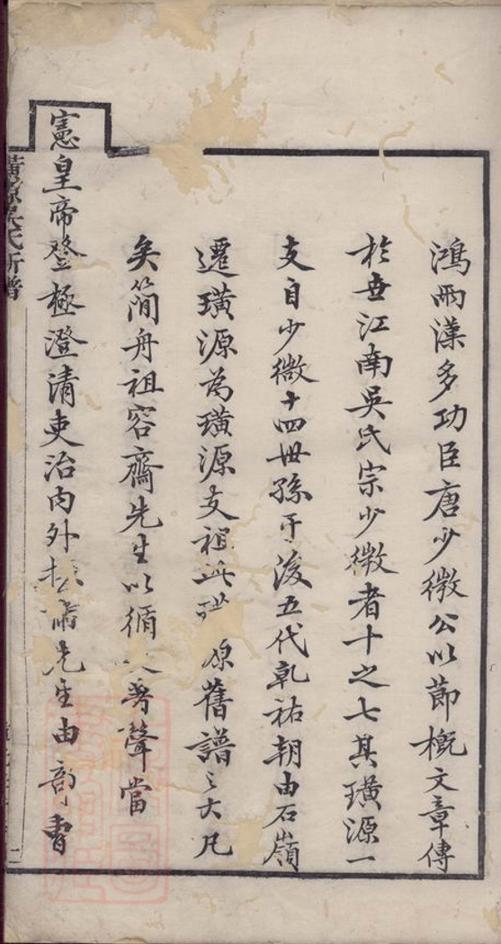 鴻兩漢多功臣唐少微公以節概文章傳
於世江南吳氏宗少微者十之七其璜源一
支自少微十四世孫于後五代乾祐朝由石嶺
遷璜源為璜源支祖此 原舊譜之大凡
矣簡舟祖容齋先生以循 著聲當
憲皇帝登極澄清吏治內外 肅先生由部曹
吳氏新譜